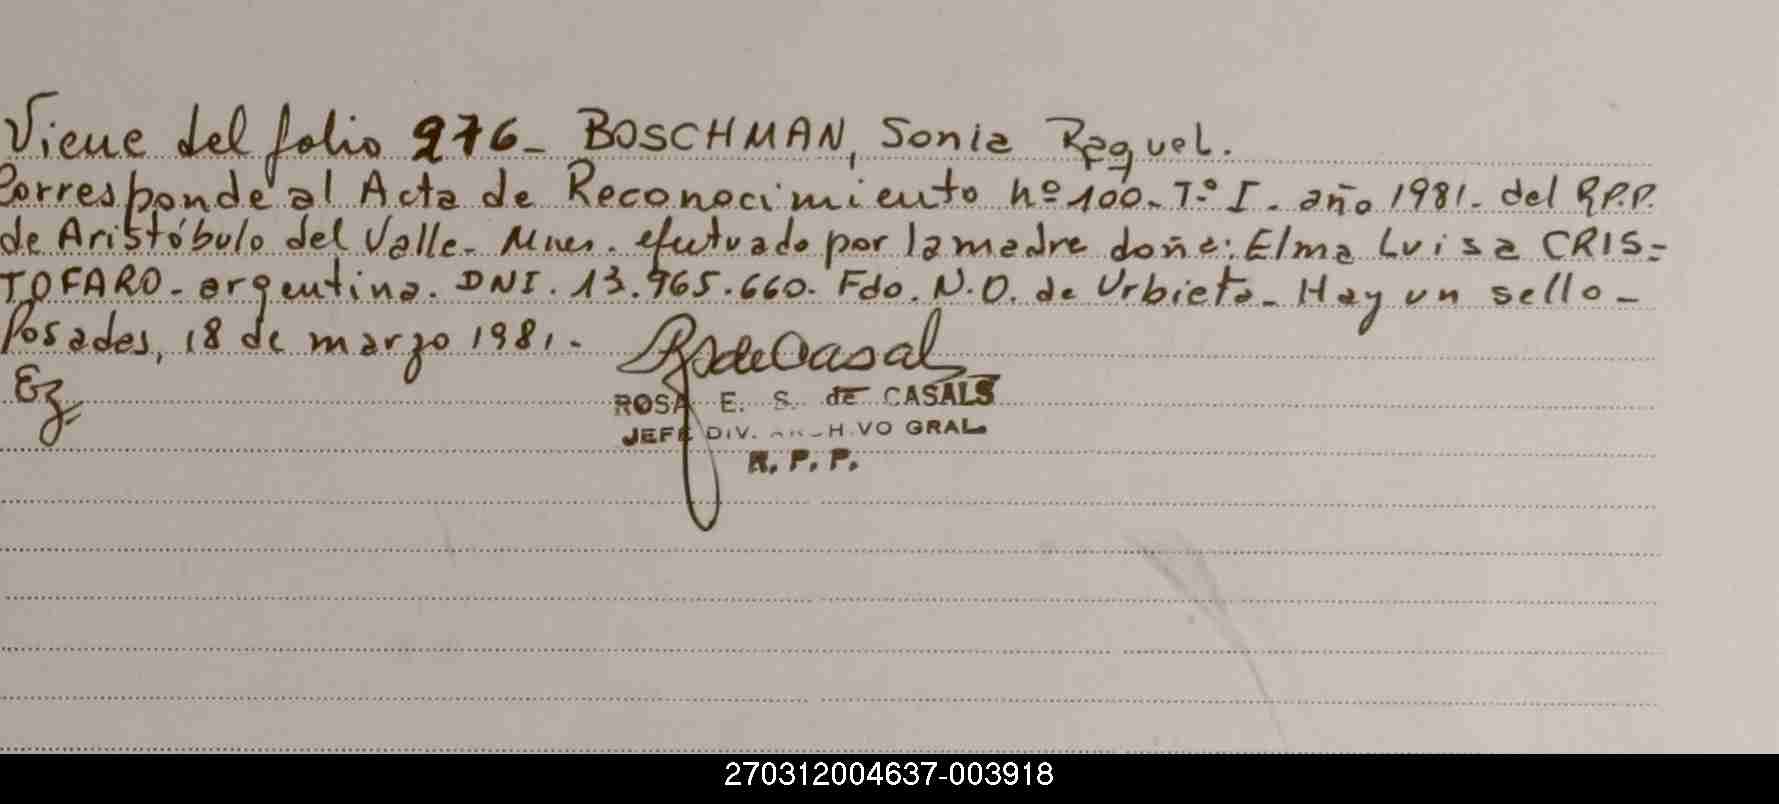 Viene del folio 276_ BOSCHMAN, Sonia Raquel.
Corresponde al Acta de Reconocimiento nº 100. Tº I. año 1981. del R.P.P.
de Aristóbulo del Valle. Mnes. efetuado por la madre doña: Elma Luisa CRIS=
TOFARO. argentina. DNI. 13.965.660. Fdo. N.O. de Urbieta. Hay un sello_
Posadas, 18 de marzo 1981.-
Ez
RSdeCasal
ROSA E. S. de CASALS
JEFE DIV. ARCHIVO GRAL
R. P. P.
270312004637-003918